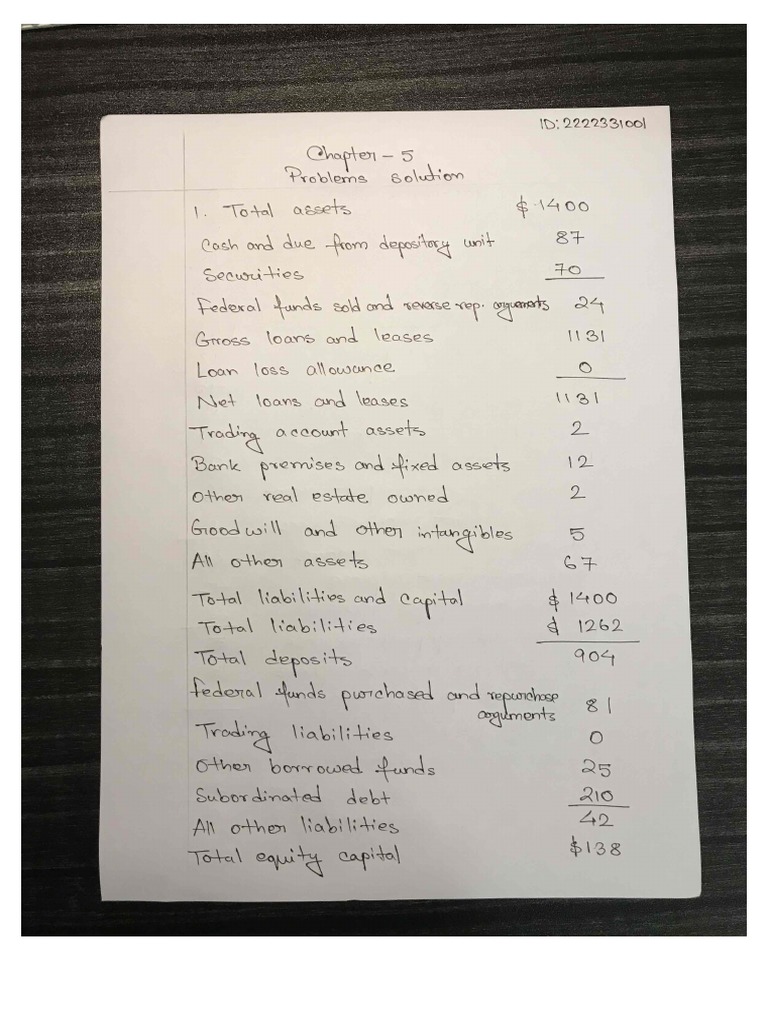 ID: 2222331001
Chapter - 5
Problems solution
1. Total assets $ 1400
Cash and due from depository unit 87
Securities 70
Federal funds sold and reverse rep. arguements 24
Gross loans and leases 1131
Loan loss allowance 0
Net loans and leases 1131
Trading account assets 2
Bank premises and fixed assets 12
Other real estate owned 2
Goodwill and other intangibles 5
All other assets 67
Total liabilities and capital $ 1400
Total liabilities $ 1262
Total deposits 904
Federal funds purchased and repurchase
arguments 81
Trading liabilities 0
Other borrowed funds 25
Subordinated debt 210
All other liabilities 42
Total equity capital $138